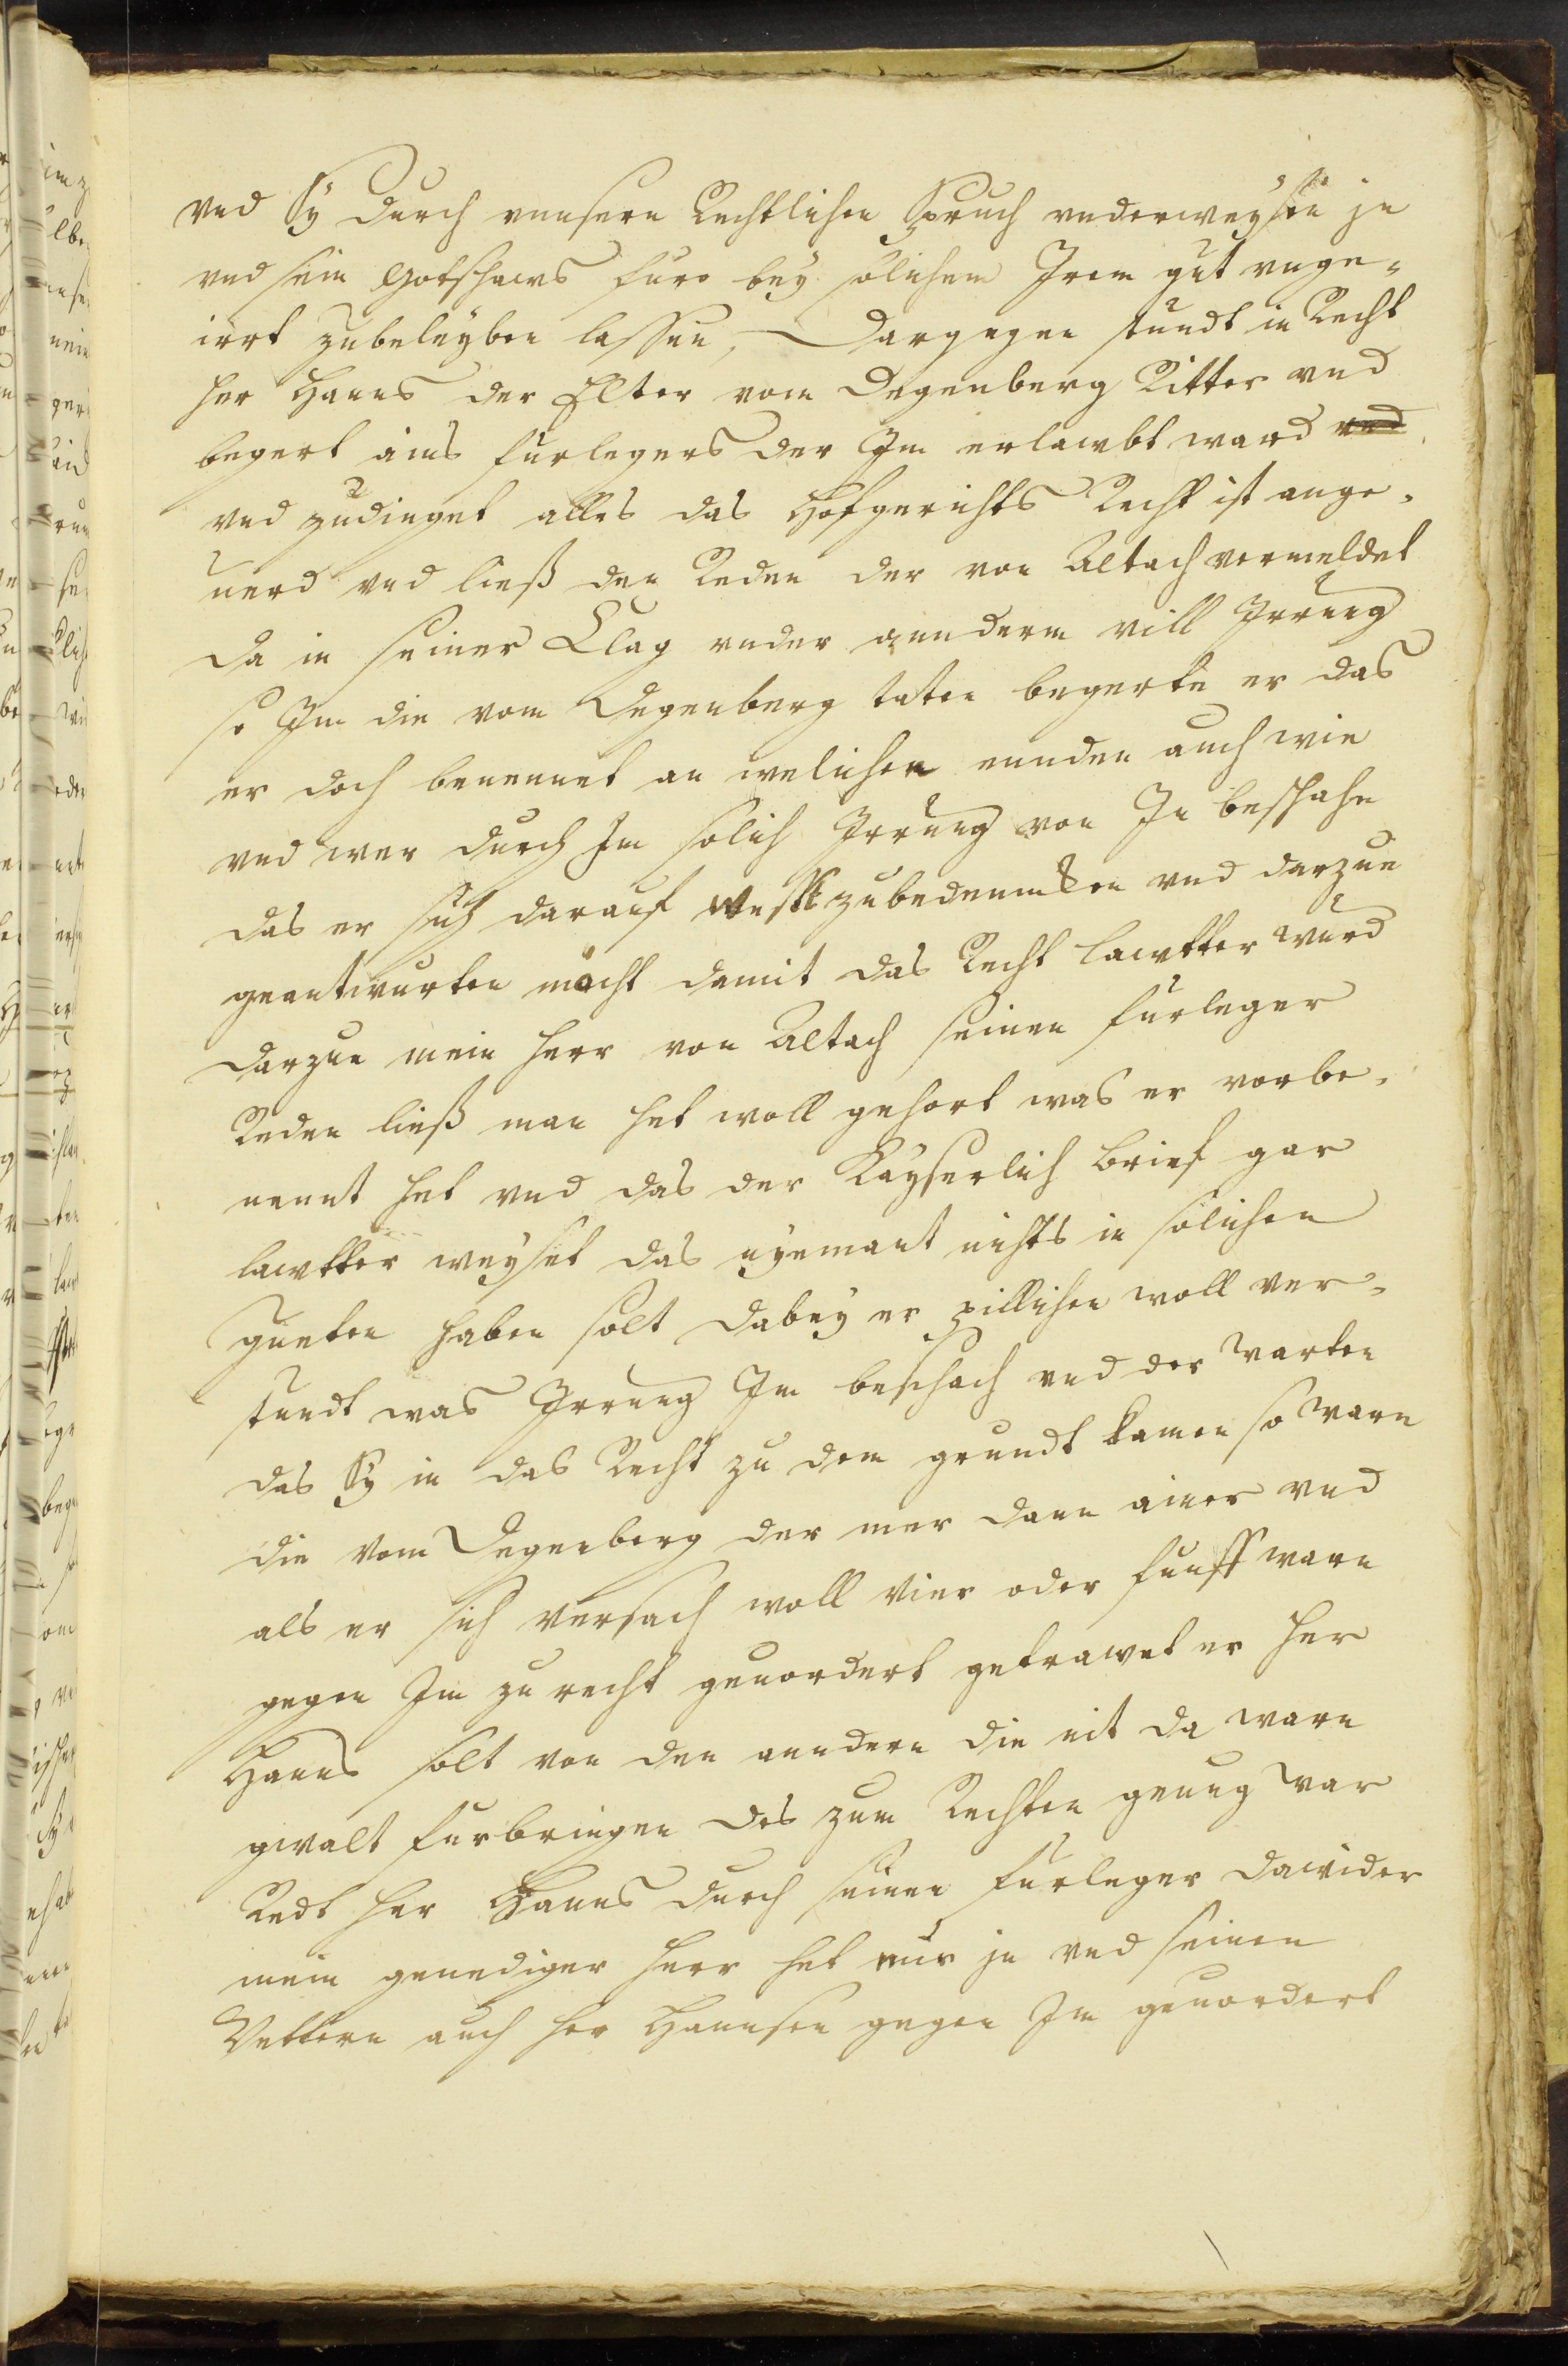 vnd Sy durch vnnsern Rechtlichen Spruch vnderweysen jn
vnd sein Gotshaws furo bey solichem Irem gut vnge„
irrt zubeleyben lassen, Dargegen stundt in Recht
her Hanns der Elter vom Degenberg Ritter vnd
begert ains furlegers der Im erlawbt ward vnd
vnd zudinget alles das Hofgerichts Recht ist ange„
uerd vnd ließ den Reden der von Altach vermeldet
da in seiner Clag vnder anndern vill Irrung
so Im die vom Degenberg taten begerte er das
er doch benennet an welichen ennden auch wie
vnd wer durch Im solich Irrung von In beschahe
das er sich darauf wesst zubedenncken vnd darzue
geantwurten möcht damit das Recht lawtter wurd
darzue mein herr von Altach seinen furleger
Reden ließ man het woll gehort was er vorbe„
nennt het vnd das der Kayserlich brief gar
lawtter weyset das nyemant nichts in solichen
gueten haben solt dabey er pillichen woll ver„
stundt was Irrung Im beschach vnd der warten
das Sy in das Recht zu dem grundt kamen so warn
die vom Degenberg der mer dann ainer vnd
als er sich versach woll vier oder funff warn
gegen Im zu recht geuordert getrawet er her
Hanns solt von den anndern die nit da warn
gwalt furbringen des zum Rechten genung war
Redt her Hanns durch seinen furleger dawider
mein genediger herr het nur jn vnd seinen
Vettern auch her Hannsen gegen Im geuordert